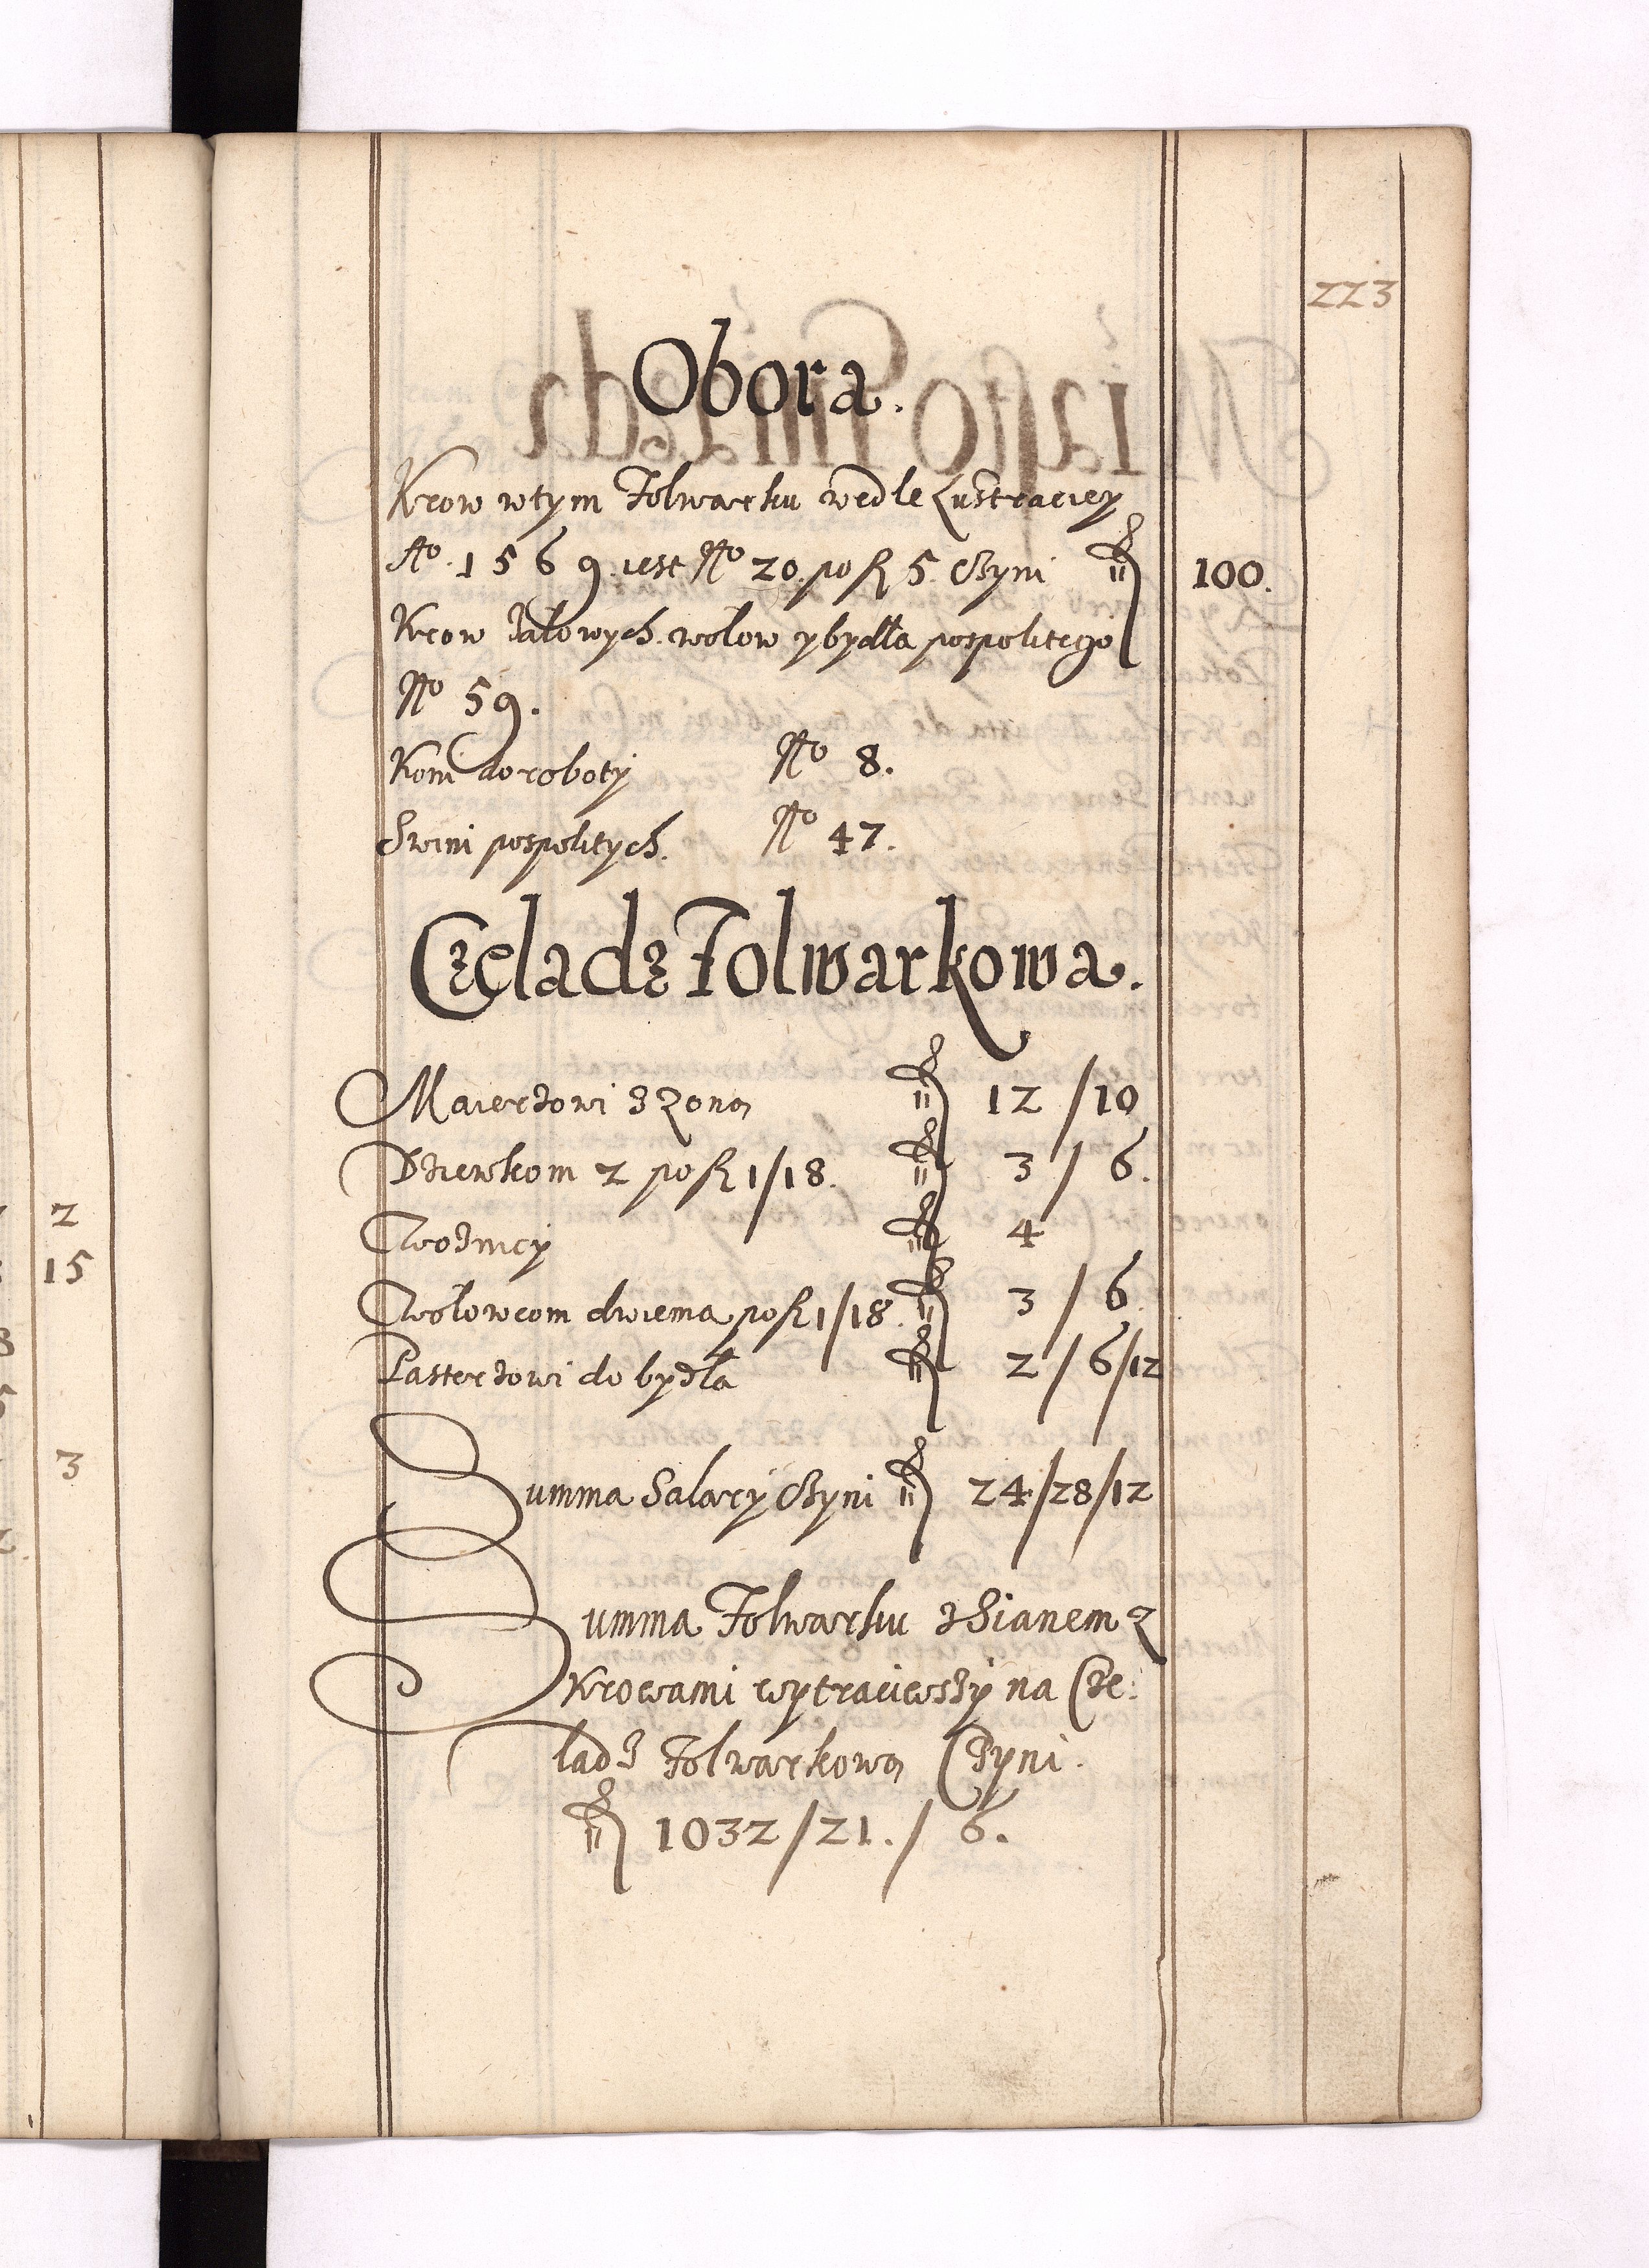 223
Obora.
Krow wtym Folwarku wedle Lustraciey
Aº. 1569. iest Nº 20. po fl 5. Czyni fl 100.
Krow Jalowych. wolow y bydła pospolitego
Nº 59.
Koni do roboty Nº 8.
Swini pospolitych. Nº 47.
Czeladz Folwarkowa.
Maierzowi z Zoną fl 12 / 10
Dziewkom 2 po fl 1/18. fl 3 / 6.
Woznicy fl 4
Wolowcom dwiema po fl 1/18. fl 3 / 6
Pasterzowi do bydla fl 2 / 6/12
Summa Salary Czyni fl 24/28/12
Summa Folwarku z Sianem z
Krowami wytraciwszy na Cze:
ladz Folwarkową Czyni.
fl 1032/21./ 6.
2
15
3